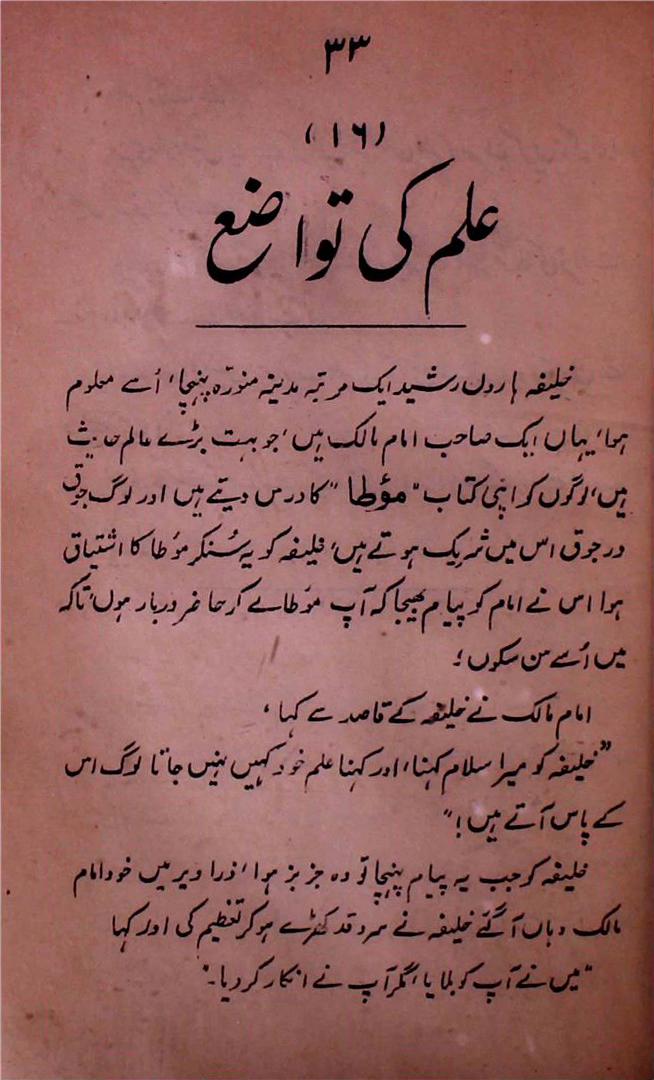 ۳۳
(۱۶)
علم کی تواضع
خلیفہ ہارون رشید ایک مرتبہ مدینہ منورّہ پہنچا، اُسے معلوم
ہوا، یہاں ایک صاحب امام مالک ہیں، جو بہت بڑے عالم حدیث
ہیں، لوگوں کو اپنی کتاب "مؤطا" کا درس دیتے ہیں اور لوگ جوق
در جوق اس میں شریک ہوتے ہیں، خلیفہ کو یہ سُنکر مؤطا کا اشتیاق
ہوا اس نے امام کو پیام بھیجا کہ آپ مؤطا لے کر حاضر دربار ہوں، تاکہ
میں اُسے سن سکوں؛
امام مالک نے خلیفہ کے قاصد سے کہا،
"خلیفہ کو میرا سلام کہنا، اور کہنا علم خود کہیں نہیں جاتا لوگ اس
کے پاس آتے ہیں!"
خلیفہ کو جب یہ پیام پہنچا تو وہ جز بز ہوا، ذرا دیر میں خود امام
مالک وہاں آگئے خلیفہ نے سرو قد کھڑے ہو کر تعظیم کی اور کہا
"میں نے آپ کو بلایا، مگر آپ نے انکار کر دیا۔"